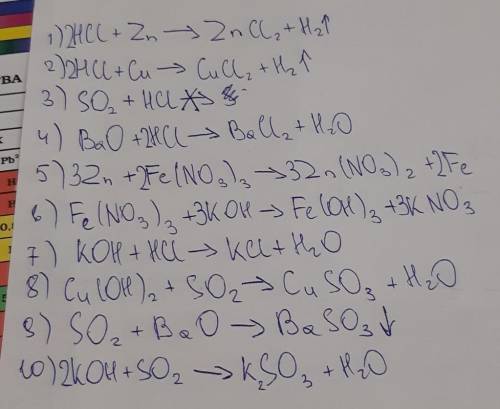 1) 2HCl + Zn → ZnCl₂ + H₂↑
2) 2HCl + Cu → CuCl₂ + H₂↑
3) SO₂ + HCl
4) BaO + 2HCl → BaCl₂ + H₂O
5) 3Zn + 2Fe(NO₃)₃ → 3Zn(NO₃)₂ + 2Fe
6) Fe(NO₃)₃ + 3KOH → Fe(OH)₃ + 3KNO₃
7) KOH + HCl → KCl + H₂O
8) Cu(OH)₂ + SO₂ → CuSO₃ + H₂O
9) SO₂ + BaO → BaSO₃↓
10) 2KOH + SO₂ → K₂SO₃ + H₂O
ВА
Pb²
H
0,